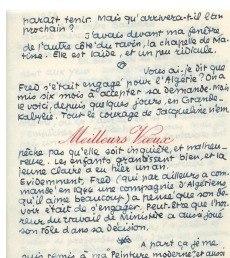 paraît tenir. Mais qu'arrivera-t-il l'an
prochain ?
J'avais devant ma fenêtre,
de l'autre côté du ravin, la chapelle de Ma-
tisse. Elle est laide, et un peu ridicule.
Vous ai-je dit que
Fred s'était engagé pour l'Algérie ? On a
mis six mois à accepter sa demande. Mais
le voici, depuis quelques jours, en Grande-
Kabylie. Tout le courage de Jacqueline n'em
Meilleurs Vœux
pêche pas qu'elle soit inquiète, et malheu-
reuse. Les enfants grandissent bien, et la
jeune Claire a eu hier un an.
Evidemment, Fred (qui par ailleurs a com-
mandé en 1944 une compagnie d'Algériens
qu'il aime beaucoup) a pensé que son de-
voir était de s'engager. Peut-être que l'hor-
reur du travail de Ministère a aussi joué
son rôle dans sa décision.
A part ça je me
suis remis à ma "Peinture moderne" et aussi